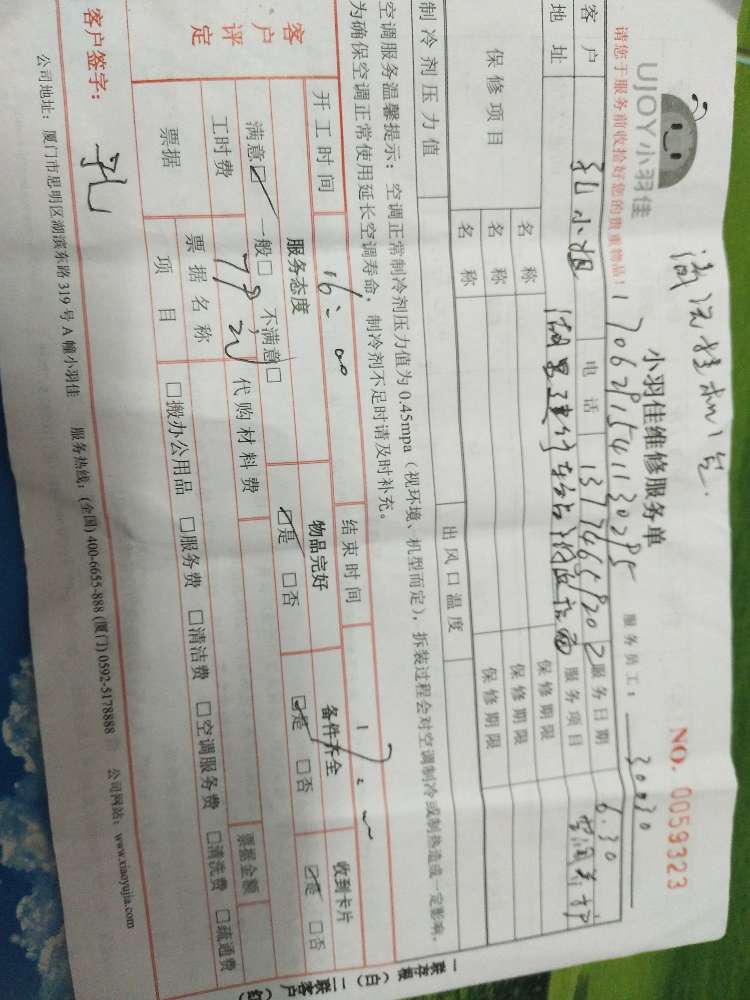 UJOY小羽佳
小羽佳维修服务单
NO. 0059323
请您于服务前收拾好您的贵重物品！
1706291541130295
服务员工： 30030
客户 孔小姐 电话 13774659202 服务日期 6.30
地址 服务项目
保修项目 名称 保修期限
名称 保修期限
名称 保修期限
制冷剂压力值 出风口温度
空调服务温馨提示：空调正常制冷剂压力值为0.45mpa（视环境、机型而定），拆装过程会对空调制冷或制热造成一定影响，
为确保空调正常使用延长空调寿命，制冷剂不足时请及时补充。
开工时间 16:00 结束时间
客户评定 服务态度 物品完好 备件齐全 收到卡片
满意☑ 一般□ 不满意□ ☑是 □否 ☑是 □否 ☑是 □否
工时费 代购材料费
票据 票据名称 票据金额
项目 □搬办公用品 □服务费 □清洁费 □空调服务费 □清洗费 □疏通费
客户签字： 孔
公司地址：厦门市思明区湖滨东路319号A幢小羽佳 服务热线：(全国) 400-6655-888 (厦门) 0592-5178888 公司网站：www.xiaoyujia.com
一联存根（白）二联客户